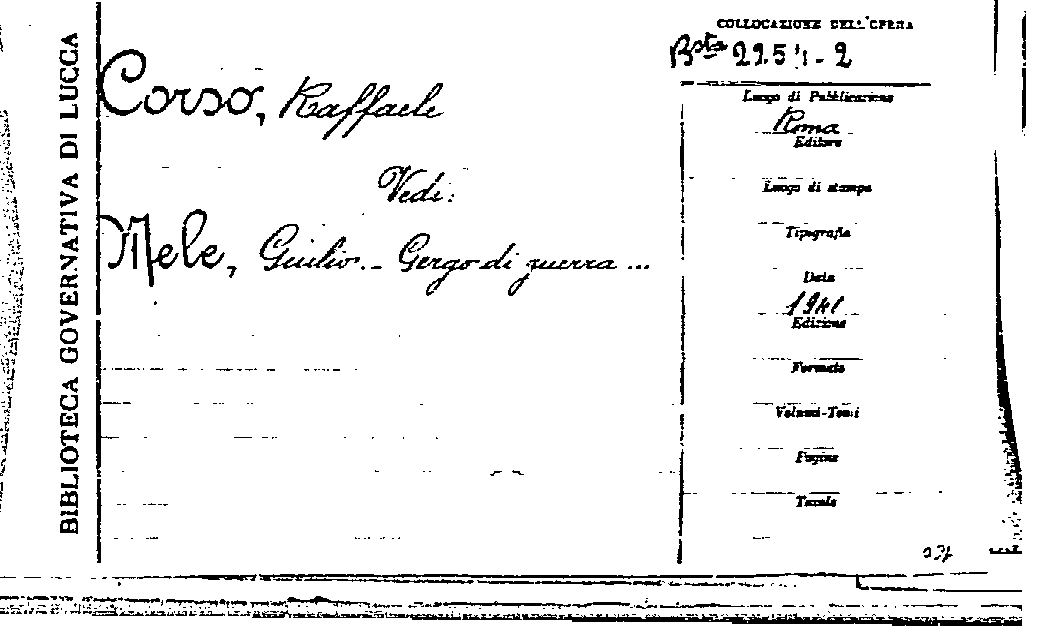 BIBLIOTECA GOVERNATIVA DI LUCCA
Corso, Raffaele
Vedi:
Mele, Giulio.- Gergo di guerra ...
COLLOCAZIONE DELL'OPERA
Bsta
Luogo di Pubblicazione
Roma
Editore
Luogo di stampa
Tipografia
Data
1941
Edizione
Formato
Volumi-Tomi
Pagine
Tavole